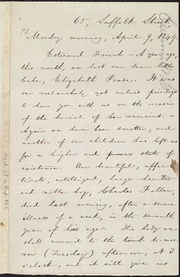 65, Suffolk Street,
Monday morning, April 9, 1849.
Esteemed Friend — A year ago,
this month, we lost our dear little
babe, Elizabeth Pease. It was
our melancholy, yet united privilege
to have you with us on the occasion
of the burial of her remains.
Again we have been smitten, and
another of our children has left us
for a higher and purer state of
existence. Our beautiful, affec-
tionate, intelligent, large-hearted
and noble boy, Charles Follen,
died last evening, after a severe
illness of a week, in the seventh
year of his age. His body we
shall commit to the tomb to-mor-
row (Tuesday) afternoon, at 3
o'clock, and it will give us